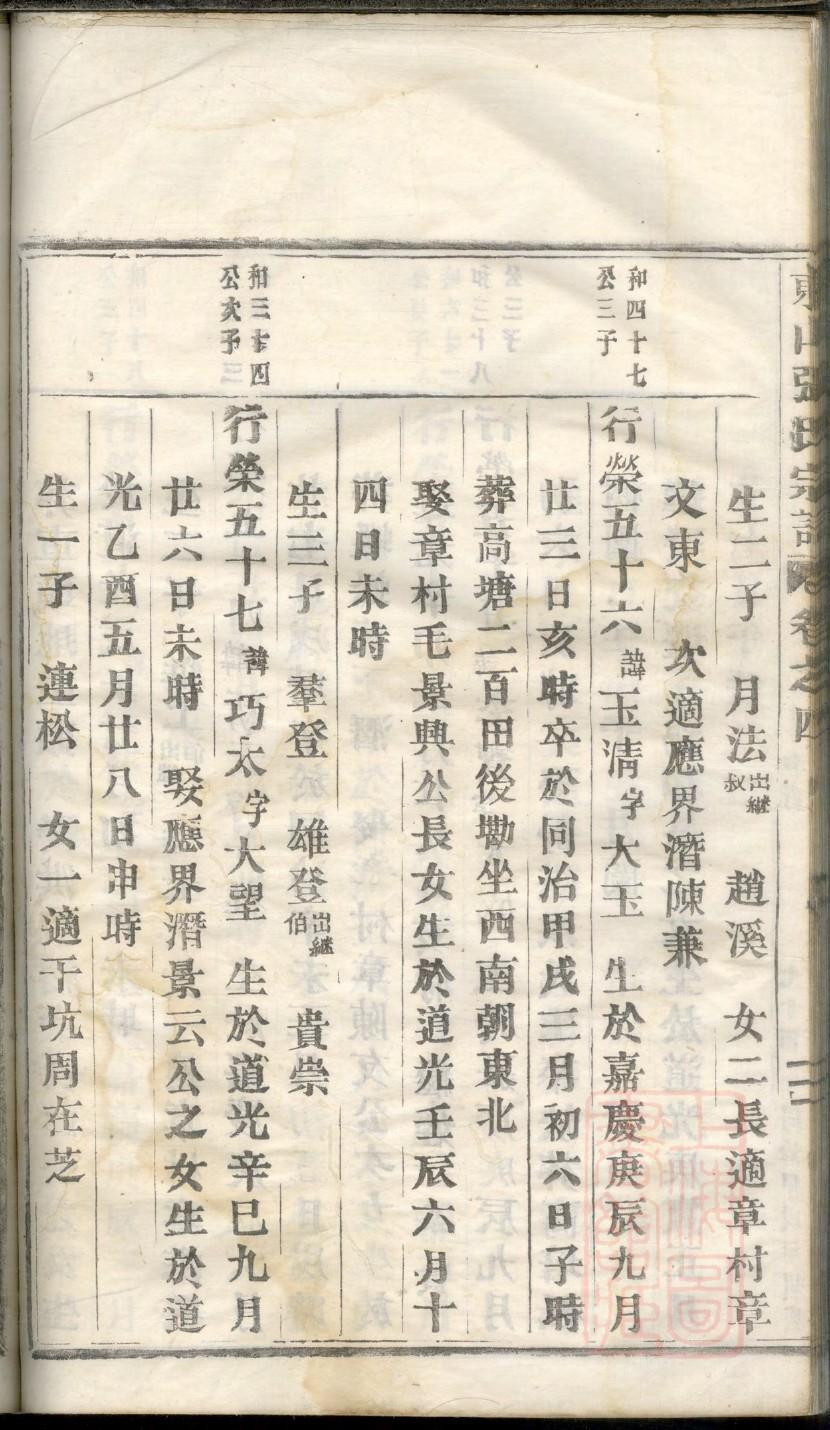 東山張氏宗譜 卷之四
生二子 月法出繼叔 趙溪 女二長適章村章
文東 次適應界潛陳兼
和四十七
公三子
行榮五十六諱玉清字大玉 生於嘉慶庚辰九月
廿三日亥時卒於同治甲戌三月初六日子時
葬高塘二百田後墈坐西南朝東北
娶章村毛景興公長女生於道光壬辰六月十
四日未時
生三子 羣登 雄登出繼伯 貴崇
和三十四
公次子
行榮五十七諱巧太字大望 生於道光辛巳九月
廿六日未時 娶應界潛景云公之女生於道
光乙酉五月廿八日申時
生一子 連松 女一適干坑周在芝